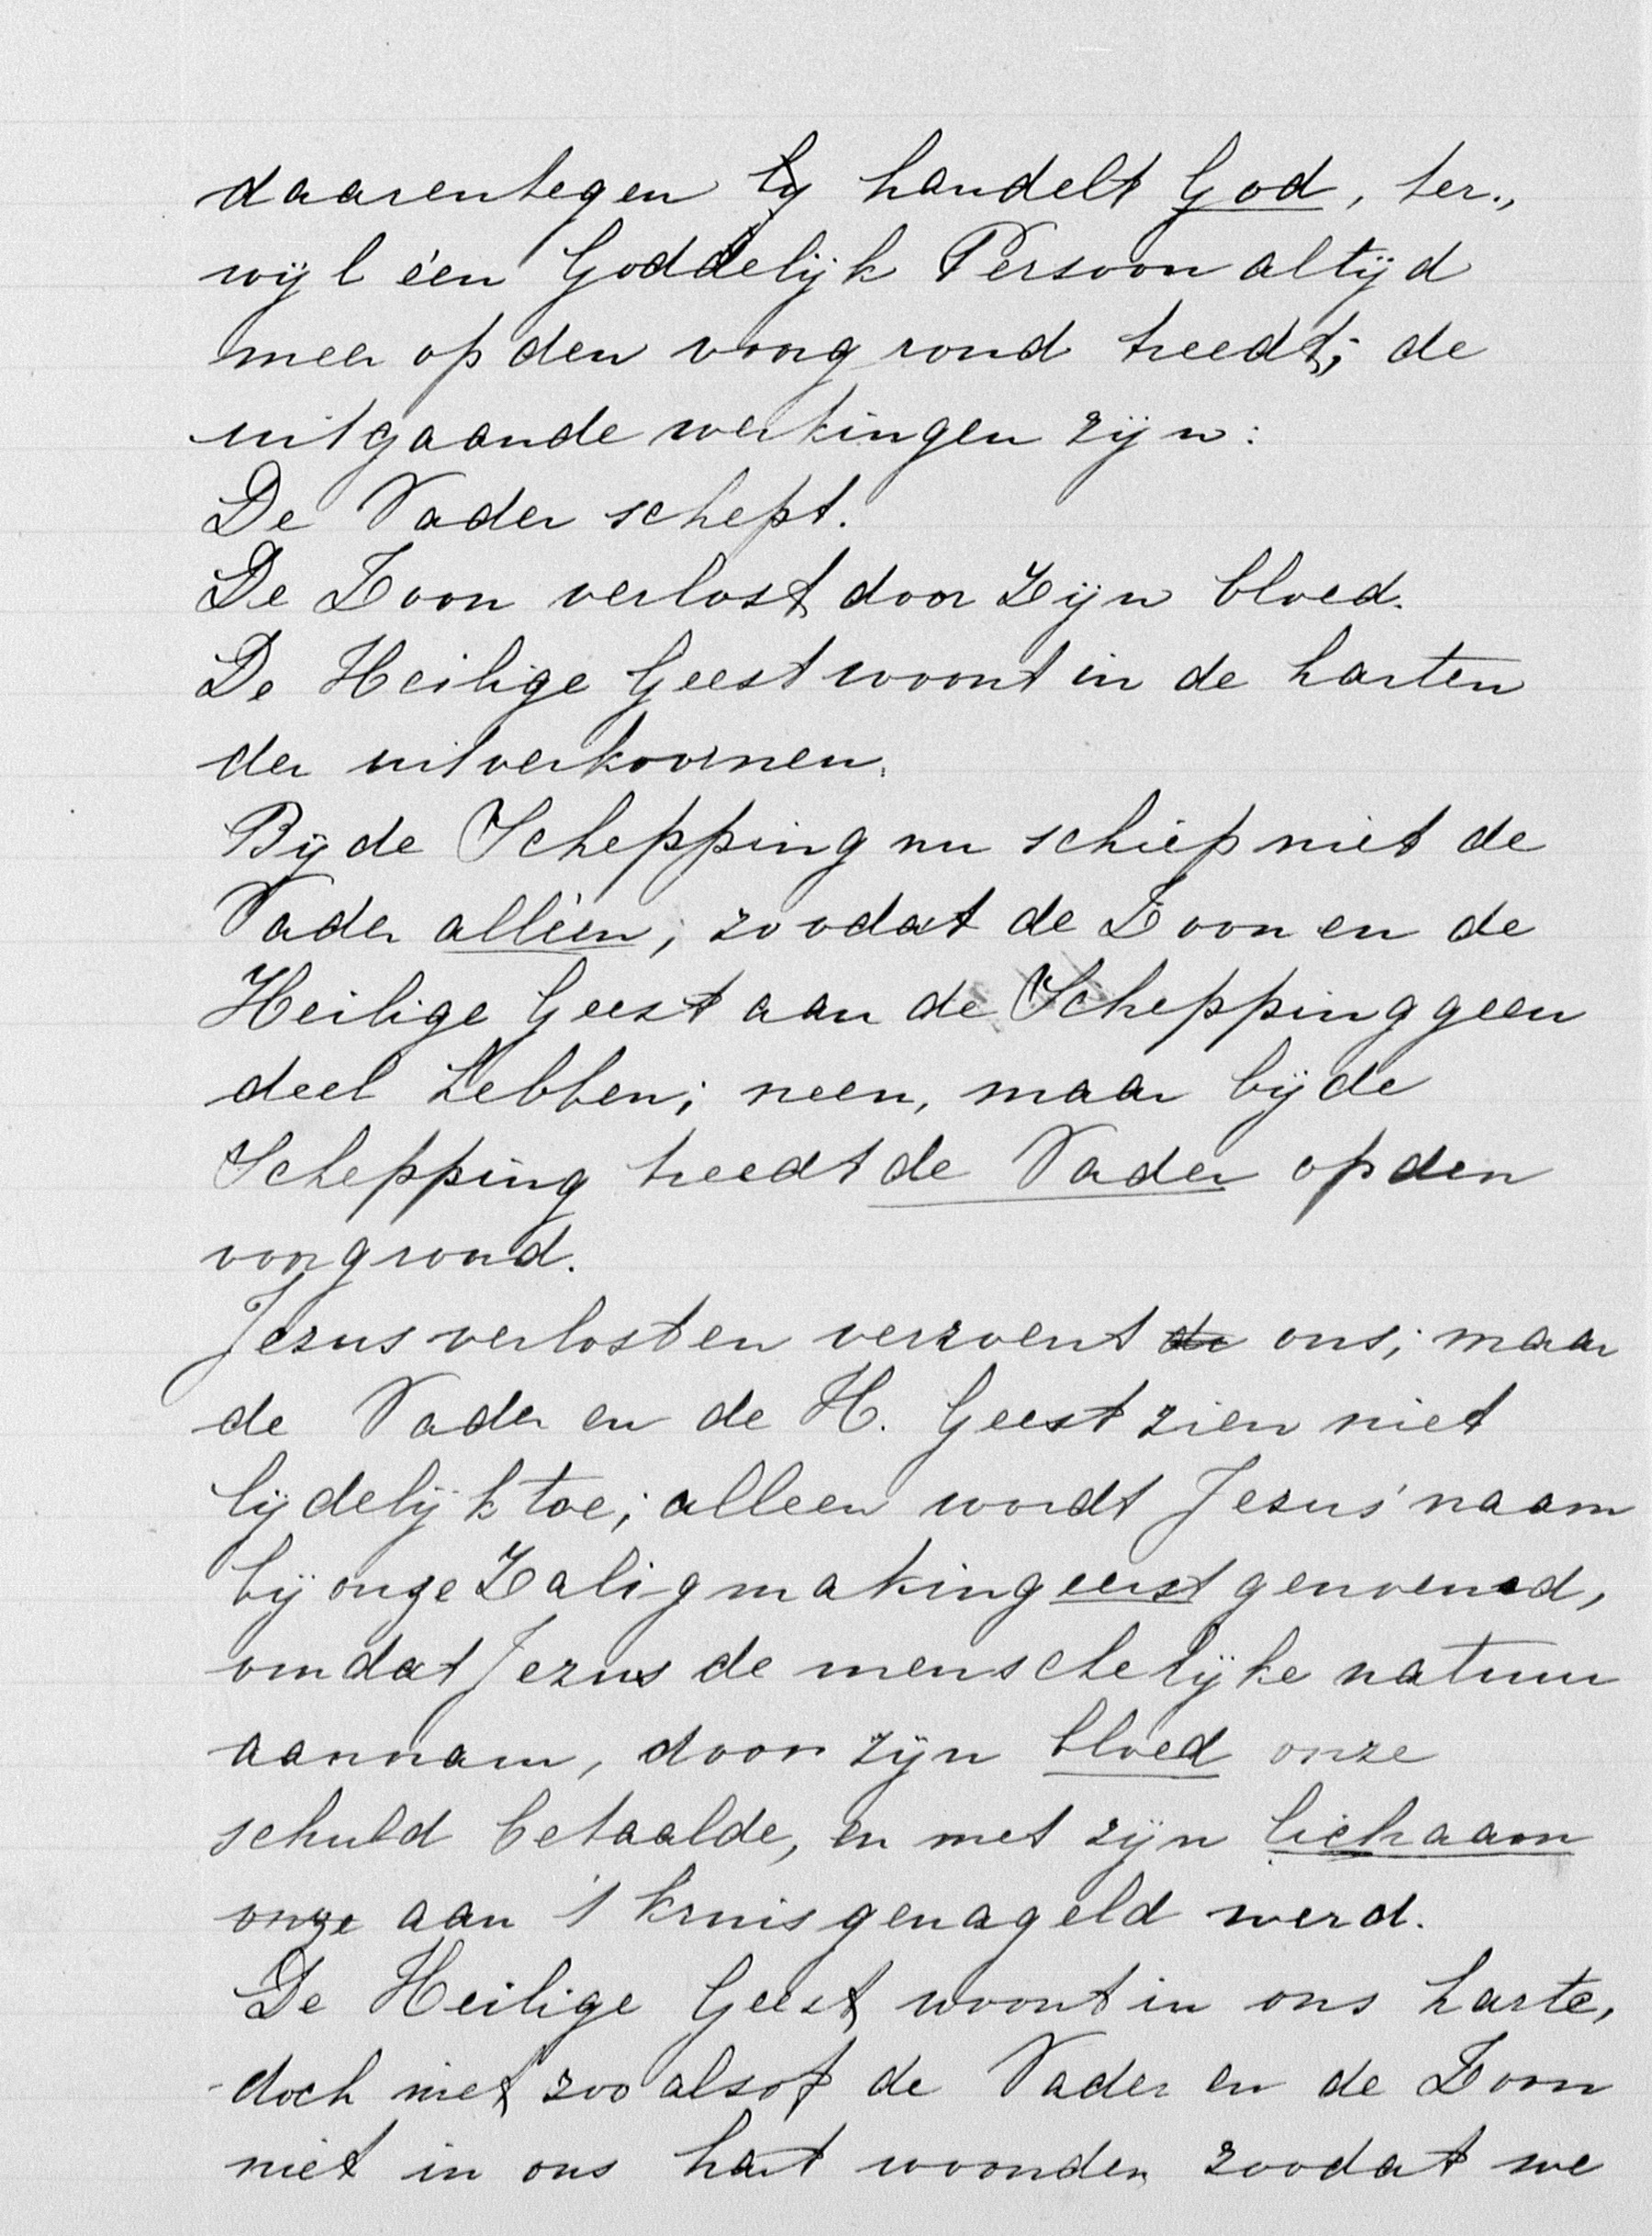 daarentegen handelt God, ter„
wijl één Goddelijk Persoon altijd
meer op den voorgrond treedt; de
uitgaande werkingen zijn:
De Vader schept.
De Zoon verlost door Zijn bloed.
De Heilige Geest woont in de harten
der uitverkoornen.
Bij de Schepping nu schiep niet de
Vader alléén; zoodat de Zoon en de
Heilige Geest aan de Schepping geen
deel hebben; neen, maar bij de
Schepping treedt de Vader op den
voorgrond.
Jezus verlost en verzoent de ons; maar
de Vader en de H. Geest zien niet
lijdelijk toe; alleen wordt Jezus' naam
bij onze Zaligmaking eerst genoemd,
omdat Jezus de menschelijke natuur
aannam, door zijn bloed onze
schuld betaalde, en met zijn lichaam
onze aan 't kruis genageld werd.
De Heilige Geest woont in ons harte,
doch niet zoo alsof de Vader en de Zoon
niet in ons hart woonden zoodat we